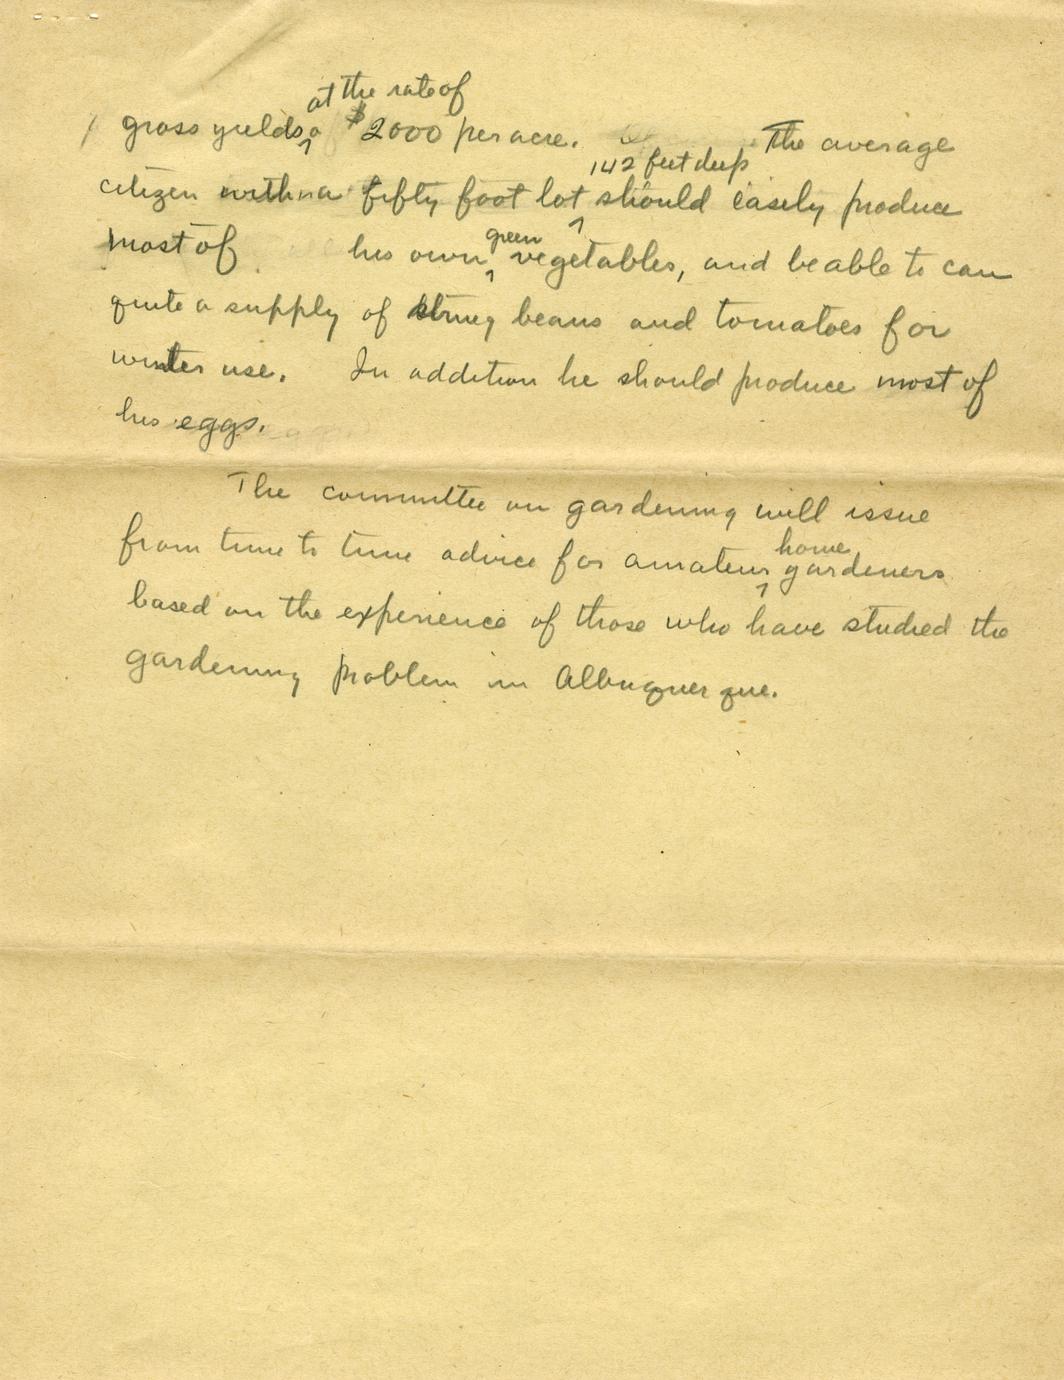 at the rate of
gross yields $2000 per acre. The average
142 feet deep
citizen with a fifty foot lot should easily produce
green
most of his own vegetables, and be able to can
quite a supply of string beans and tomatoes for
winter use. In addition he should produce most of
his eggs.
The committee on gardening will issue
home
from time to time advice for amateur gardeners
based on the experience of those who have studied the
gardening problem in Albuquerque.